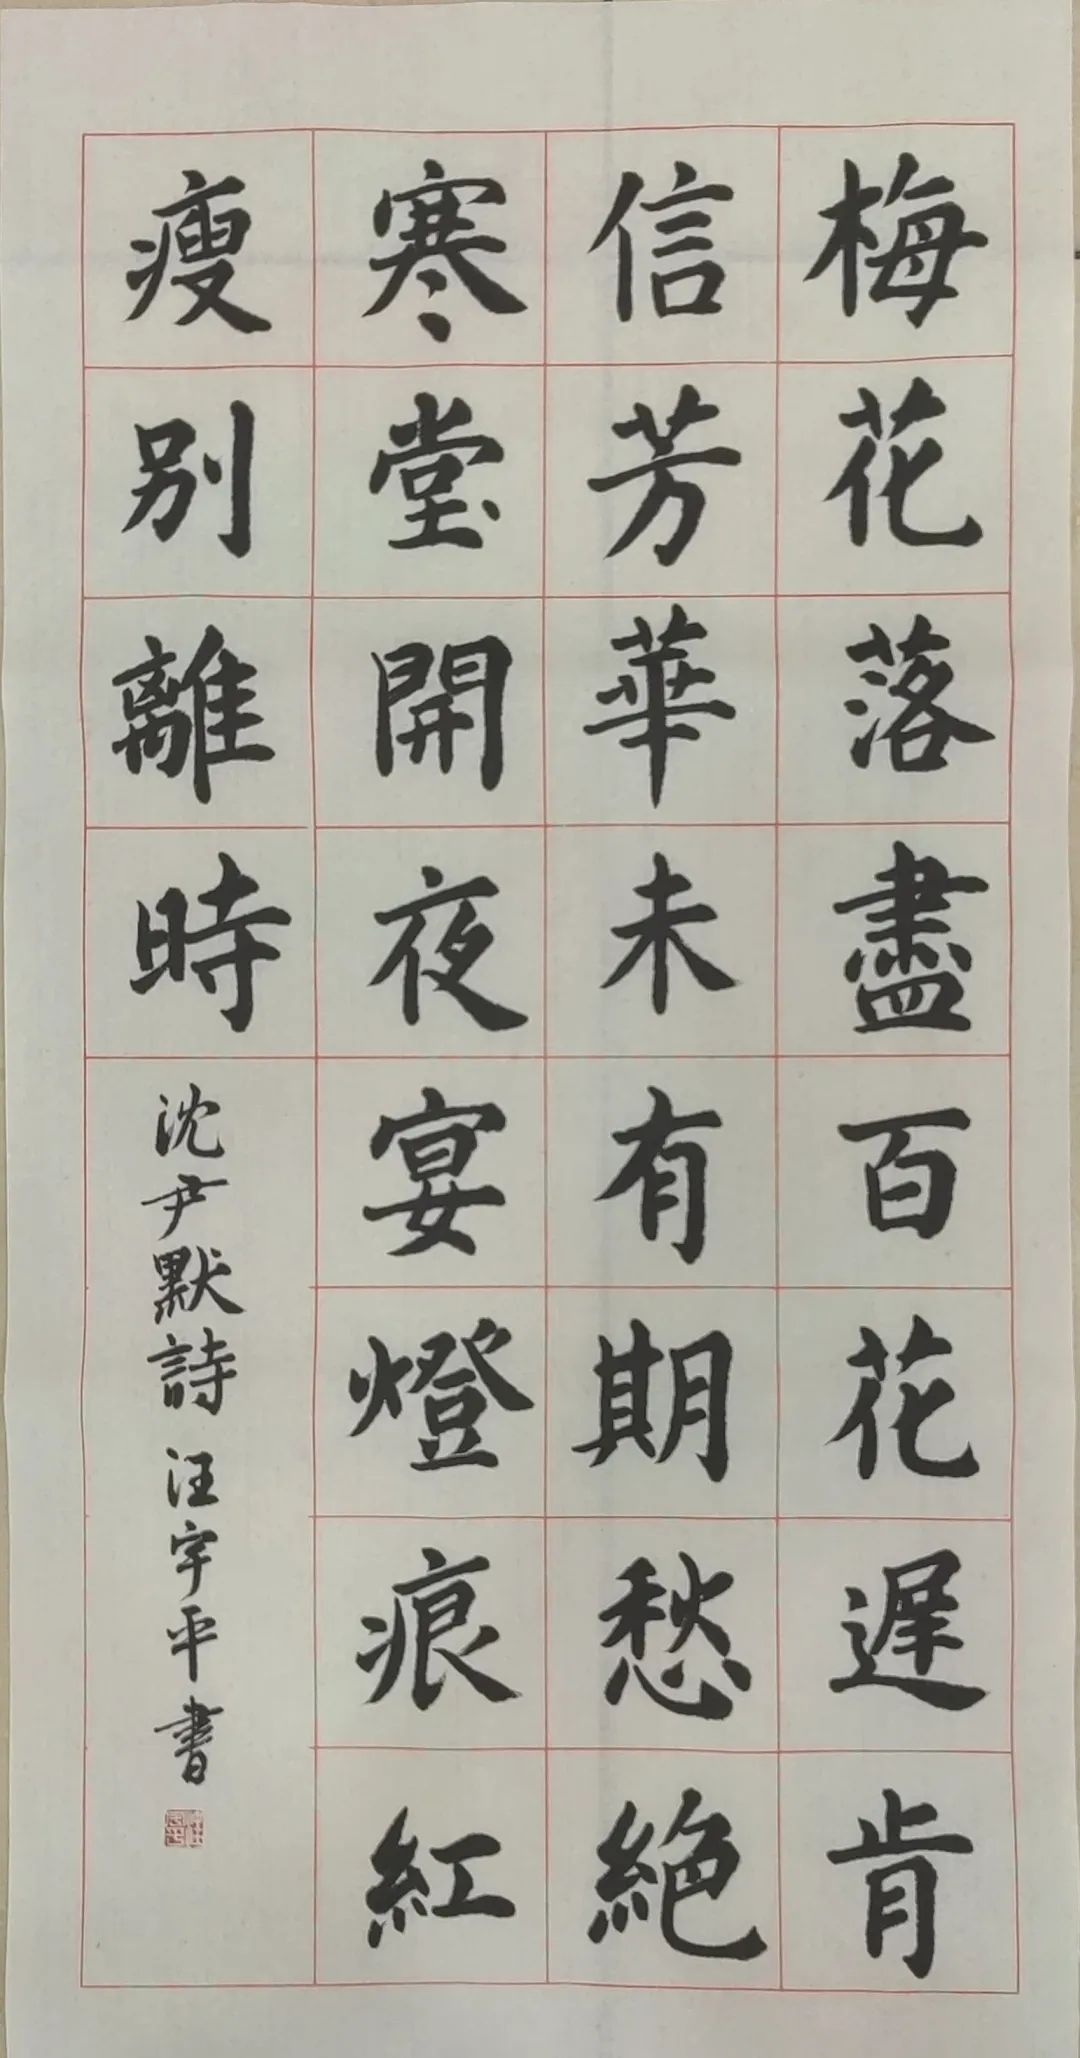 梅花落盡百花遲肯
信芳華未有期愁絕
寒堂開夜宴燈痕紅
瘦別離時
沈尹默詩 汪宇平書